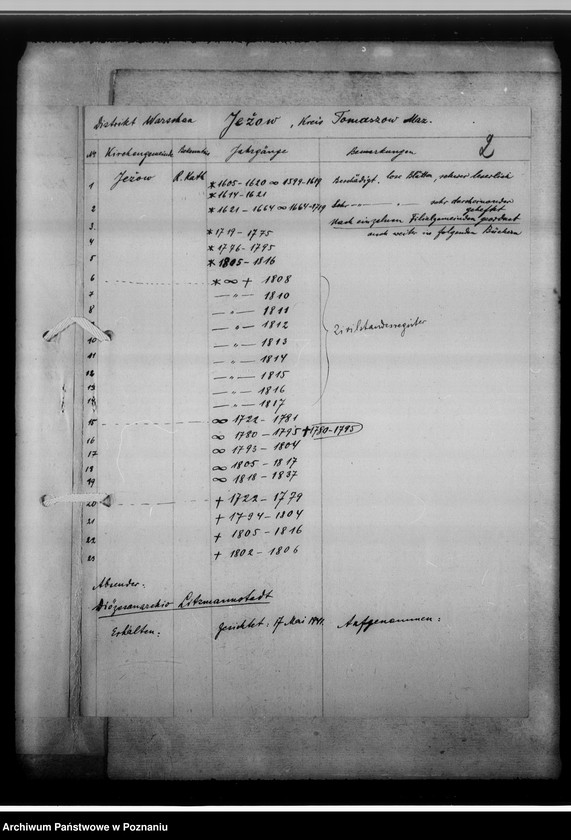 Distrikt Warschau Jeżow, Kreis Tomaszow Maz.
2
No Kirchengemeinde Bekenntn. Jahrgänge Bemerkungen
1 Jeżow R. Kath * 1605-1620 ∞ 1599-1619 Beschädigt, lose Blätter, schwer leserlich
* 1614-1621
2 * 1621-1664 ∞ 1664-1719 sehr durcheinander geheftet
nach einzelnen Filialgemeinden geordnet
3 * 1719-1775 auch weiter in folgenden Büchern
4 * 1776-1795
5 * 1805-1816
6 * ∞ + 1808
7 —"— 1810
8 —"— 1811
9 —"— 1812 Zivilstandsregister
10 —"— 1813
11 —"— 1814
12 —"— 1815
13 —"— 1816
14 —"— 1817
15 ∞ 1722-1781
16 ∞ 1780-1795 +1780-1795
17 ∞ 1793-1804
18 ∞ 1805-1817
19 ∞ 1818-1837
20 + 1722-1779
21 + 1794-1804
22 + 1805-1816
23 + 1802-1806
Absender:
Diözesanarchiv Litzmannstadt
Erhalten: Gesichtet: 17 Mai 1941. Aufgenommen:
Archiwum Państwowe w Poznaniu